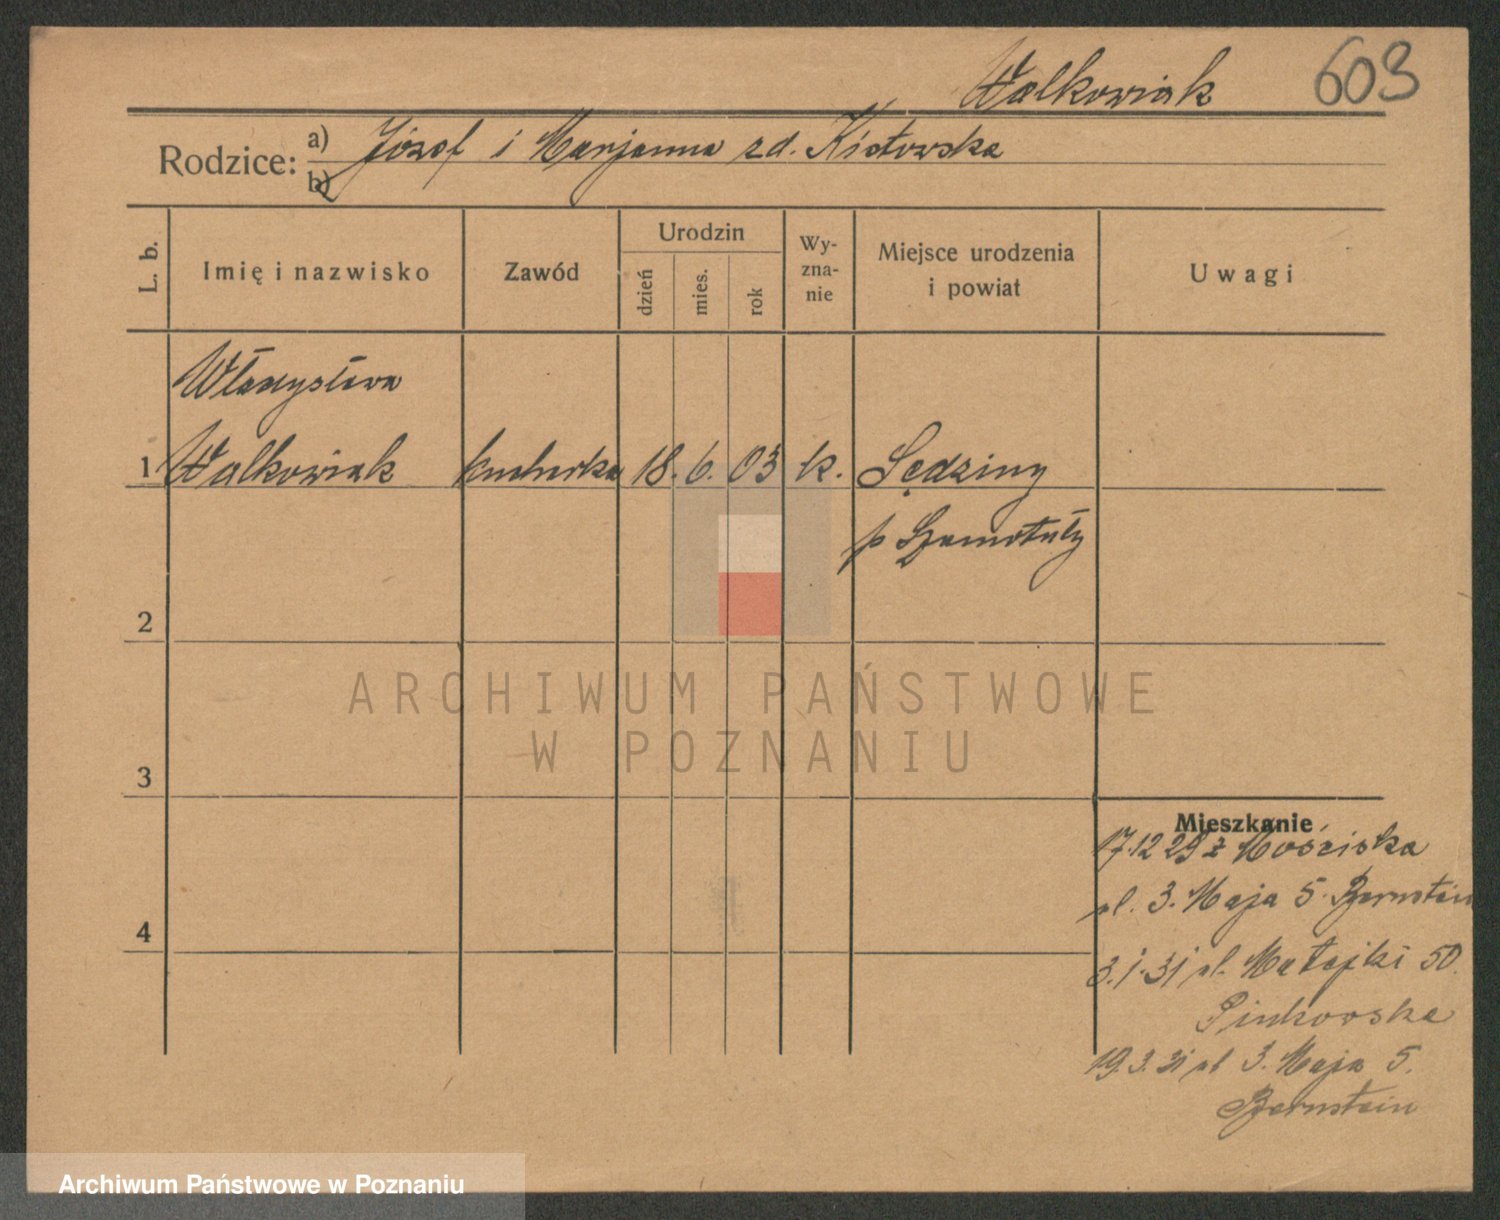 Walkowiak 603
Rodzice: a) Józef i Marjanna zd. Kistowska
b)
L. b. Imię i nazwisko Zawód Urodzin dzień mies. rok Wy-zna-nie Miejsce urodzenia i powiat Uwagi
Władysława
1 Walkowiak kucharka 18. 6. 03 k. Sędziny
p Szamotuły
2
ARCHIWUM PAŃSTWOWE
W POZNANIU
3
Mieszkanie
17.12 29 z Mościska
ul. 3. Maja 5. Bernstein
4
3.1.31 ul. Matejki 50.
Pinkowska
19.3.31 ul 3. Maja 5.
Bernstein
Archiwum Państwowe w Poznaniu